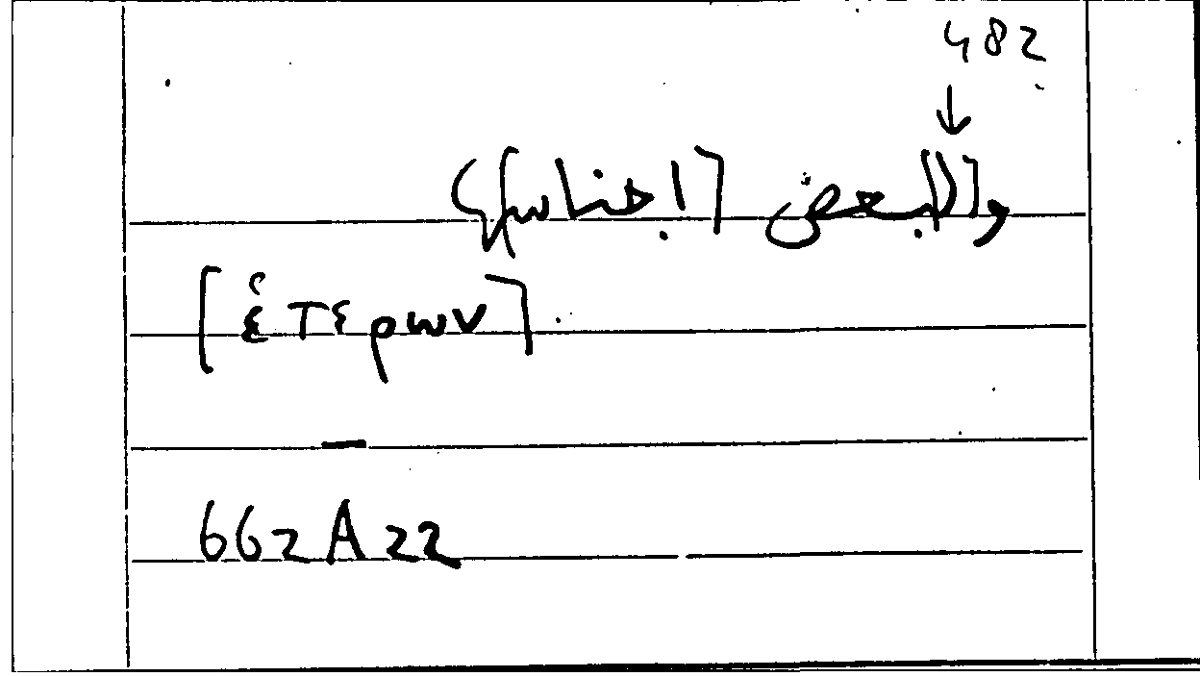 482
↓
والبعض [اجناس]
[ἑτερων]
662A22